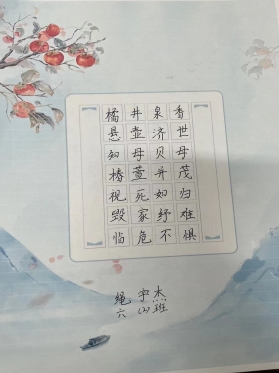 橘井泉香
悬壶济世
知母贝母
椿萱并茂
视死如归
毁家纾难
临危不惧
杰
六(2)班